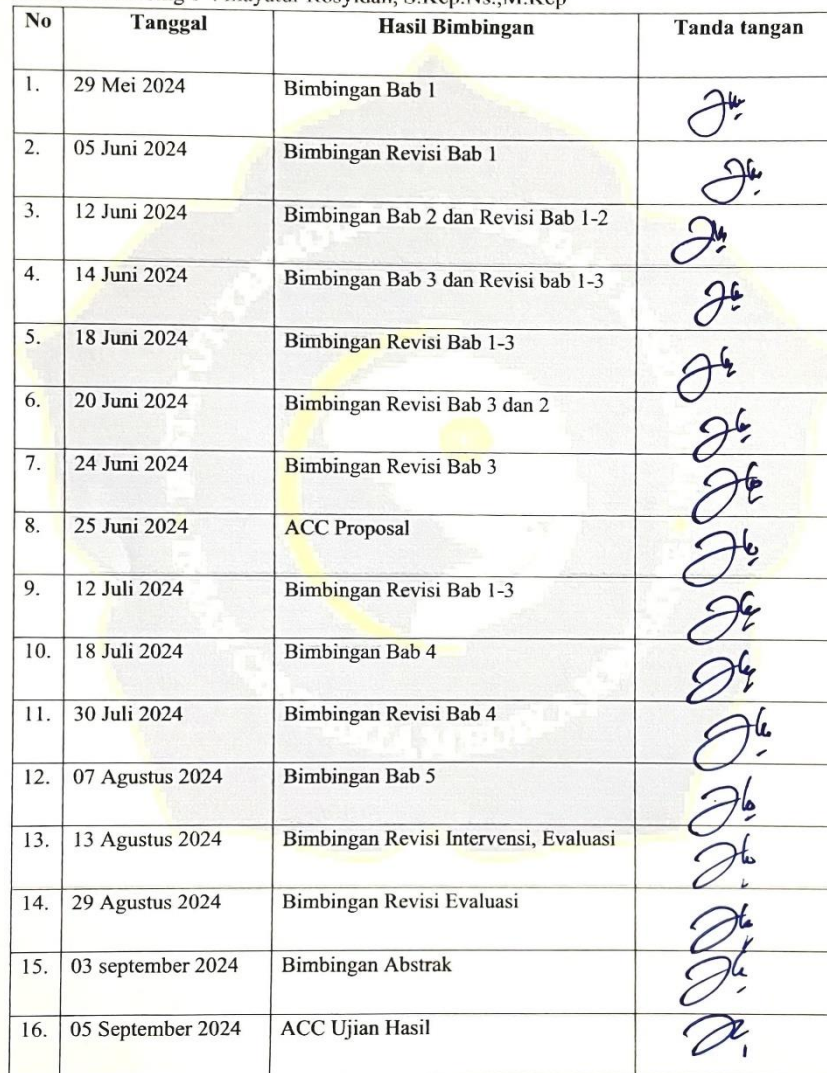 Rosyidah, S.Kep.Ns.,M.Kep
No Tanggal Hasil Bimbingan Tanda tangan
1. 29 Mei 2024 Bimbingan Bab 1
2. 05 Juni 2024 Bimbingan Revisi Bab 1
3. 12 Juni 2024 Bimbingan Bab 2 dan Revisi Bab 1-2
4. 14 Juni 2024 Bimbingan Bab 3 dan Revisi bab 1-3
5. 18 Juni 2024 Bimbingan Revisi Bab 1-3
6. 20 Juni 2024 Bimbingan Revisi Bab 3 dan 2
7. 24 Juni 2024 Bimbingan Revisi Bab 3
8. 25 Juni 2024 ACC Proposal
9. 12 Juli 2024 Bimbingan Revisi Bab 1-3
10. 18 Juli 2024 Bimbingan Bab 4
11. 30 Juli 2024 Bimbingan Revisi Bab 4
12. 07 Agustus 2024 Bimbingan Bab 5
13. 13 Agustus 2024 Bimbingan Revisi Intervensi, Evaluasi
14. 29 Agustus 2024 Bimbingan Revisi Evaluasi
15. 03 september 2024 Bimbingan Abstrak
16. 05 September 2024 ACC Ujian Hasil